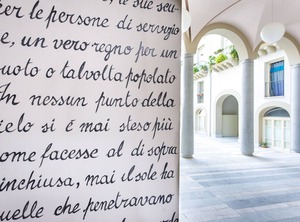 le sue scu-
per le persone di servizio
e, un vero regno per un
uoto o talvolta popolato
In nessun punto della
ielo si è mai steso più
ome facesse al di sopra
inchiusa, mai il sole ha
quelle che penetravano